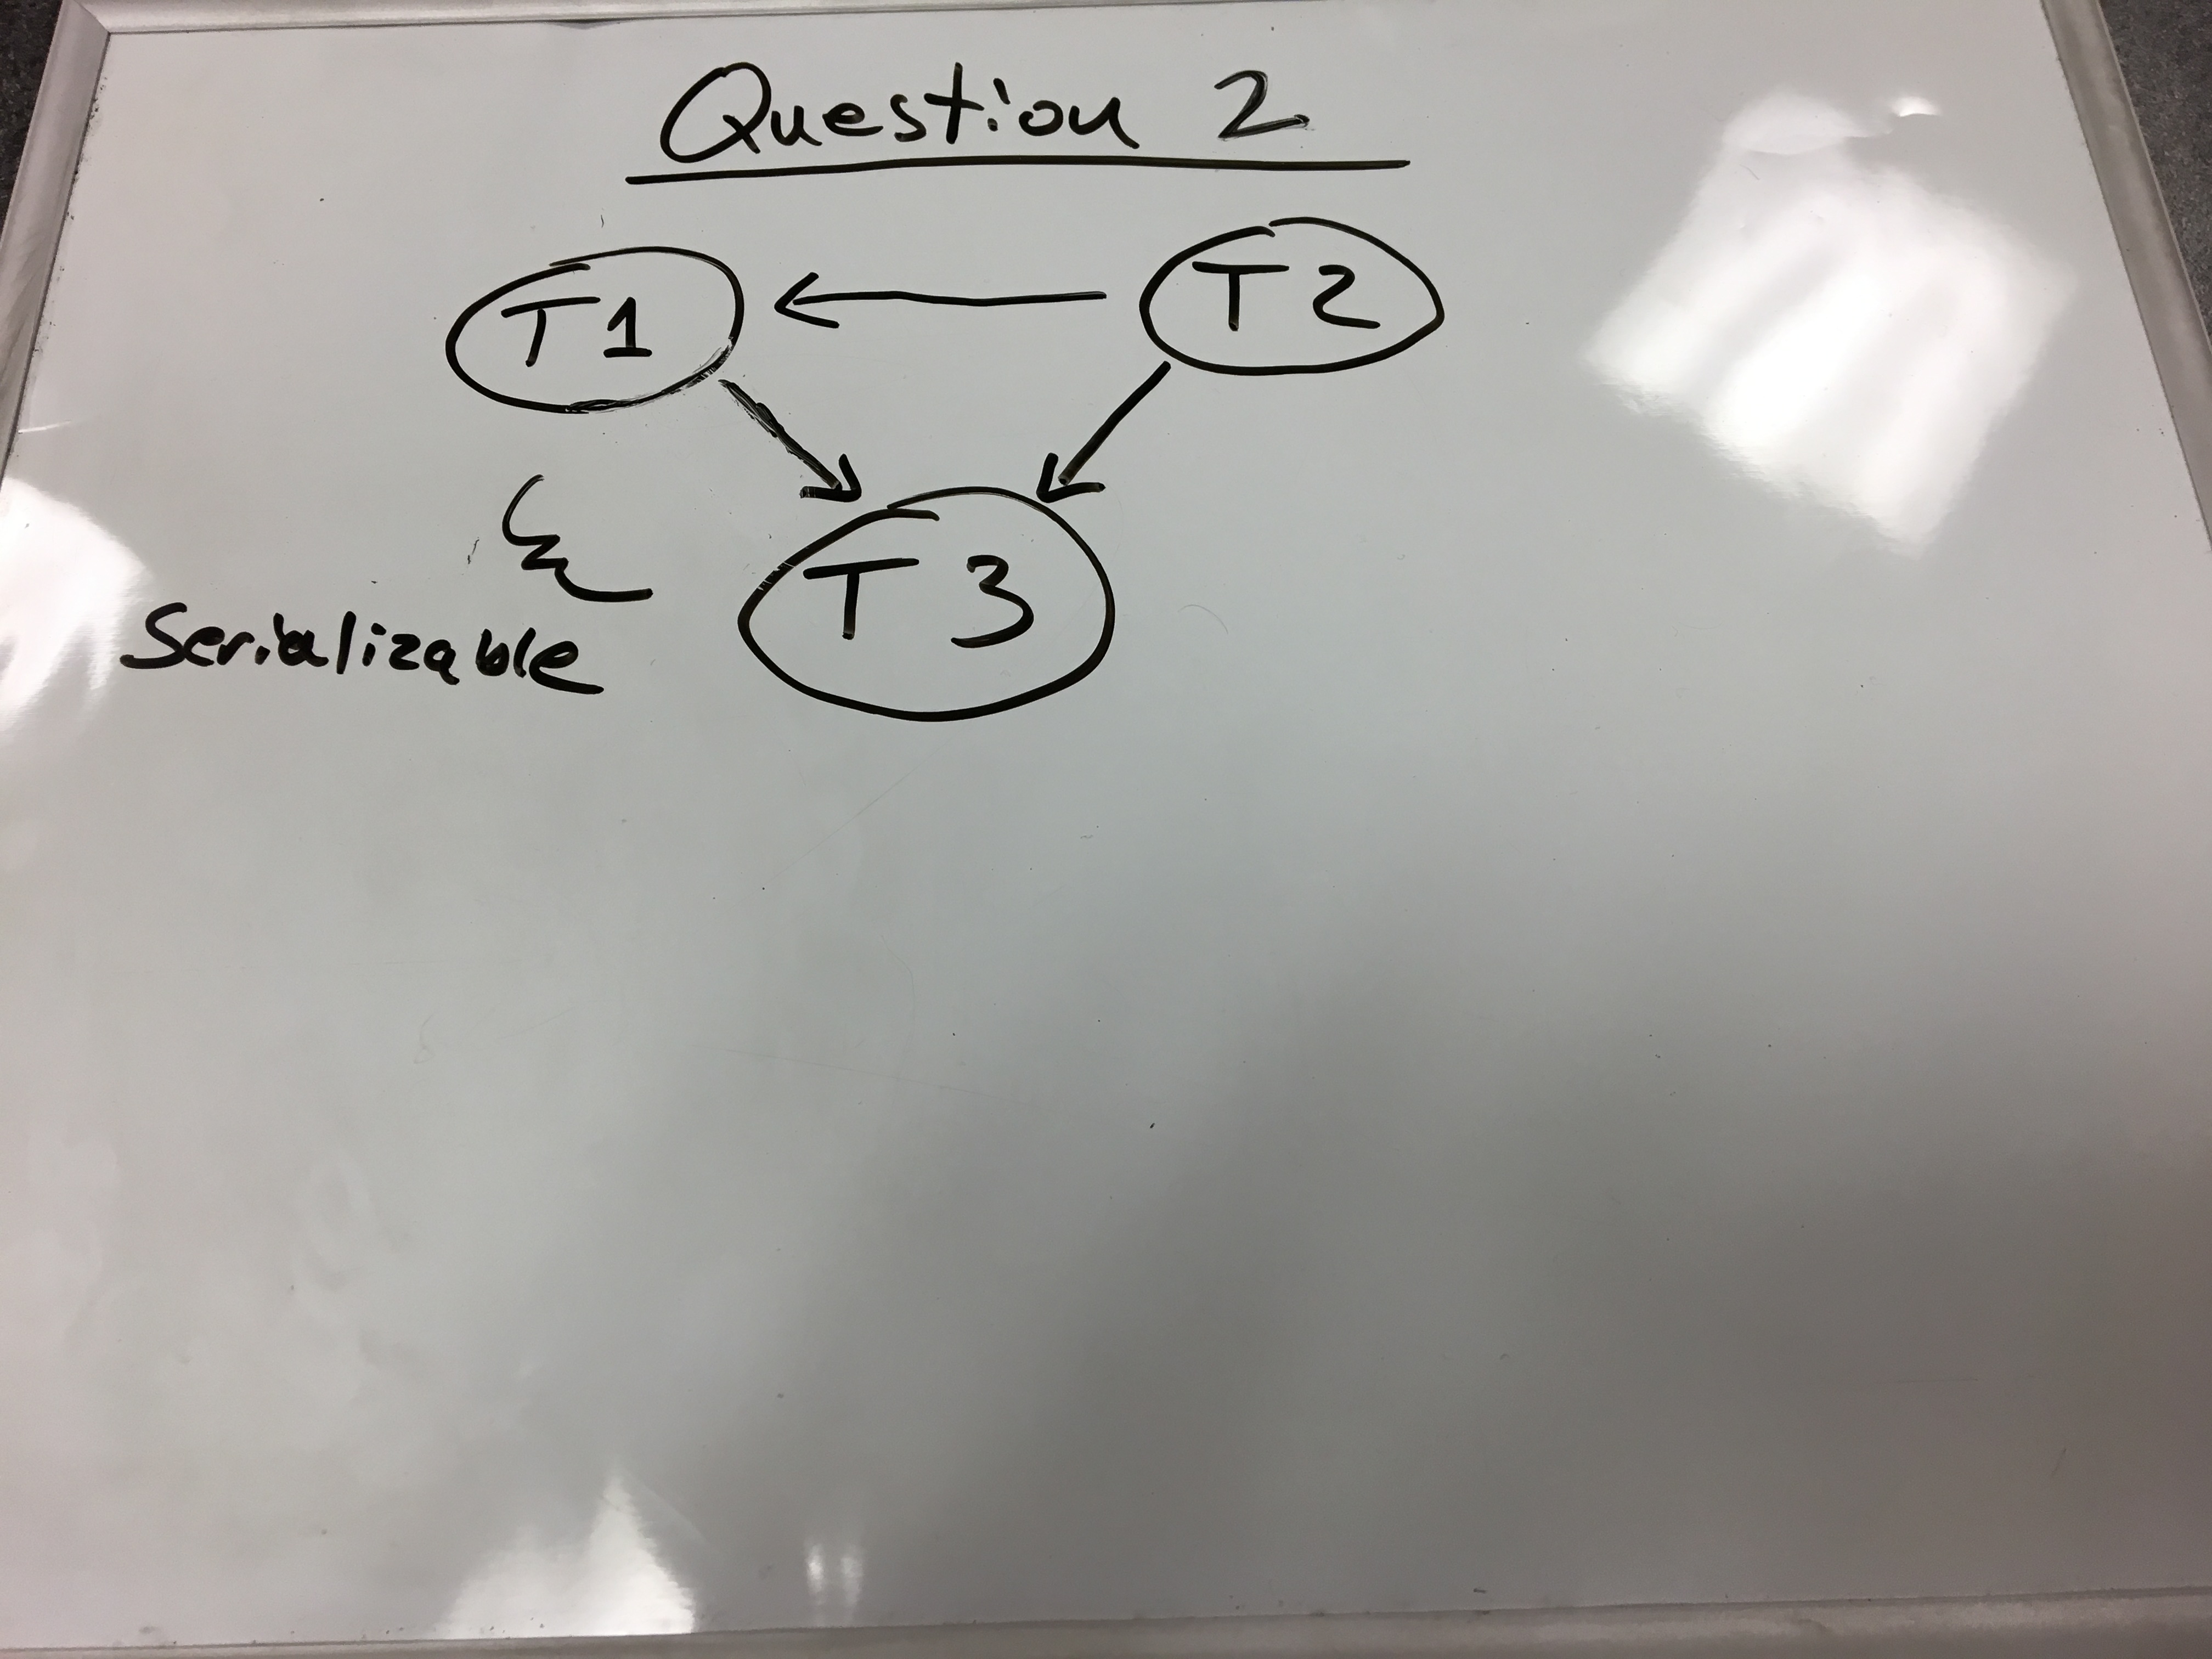 Question 2
T1
T2
T3
Serializable